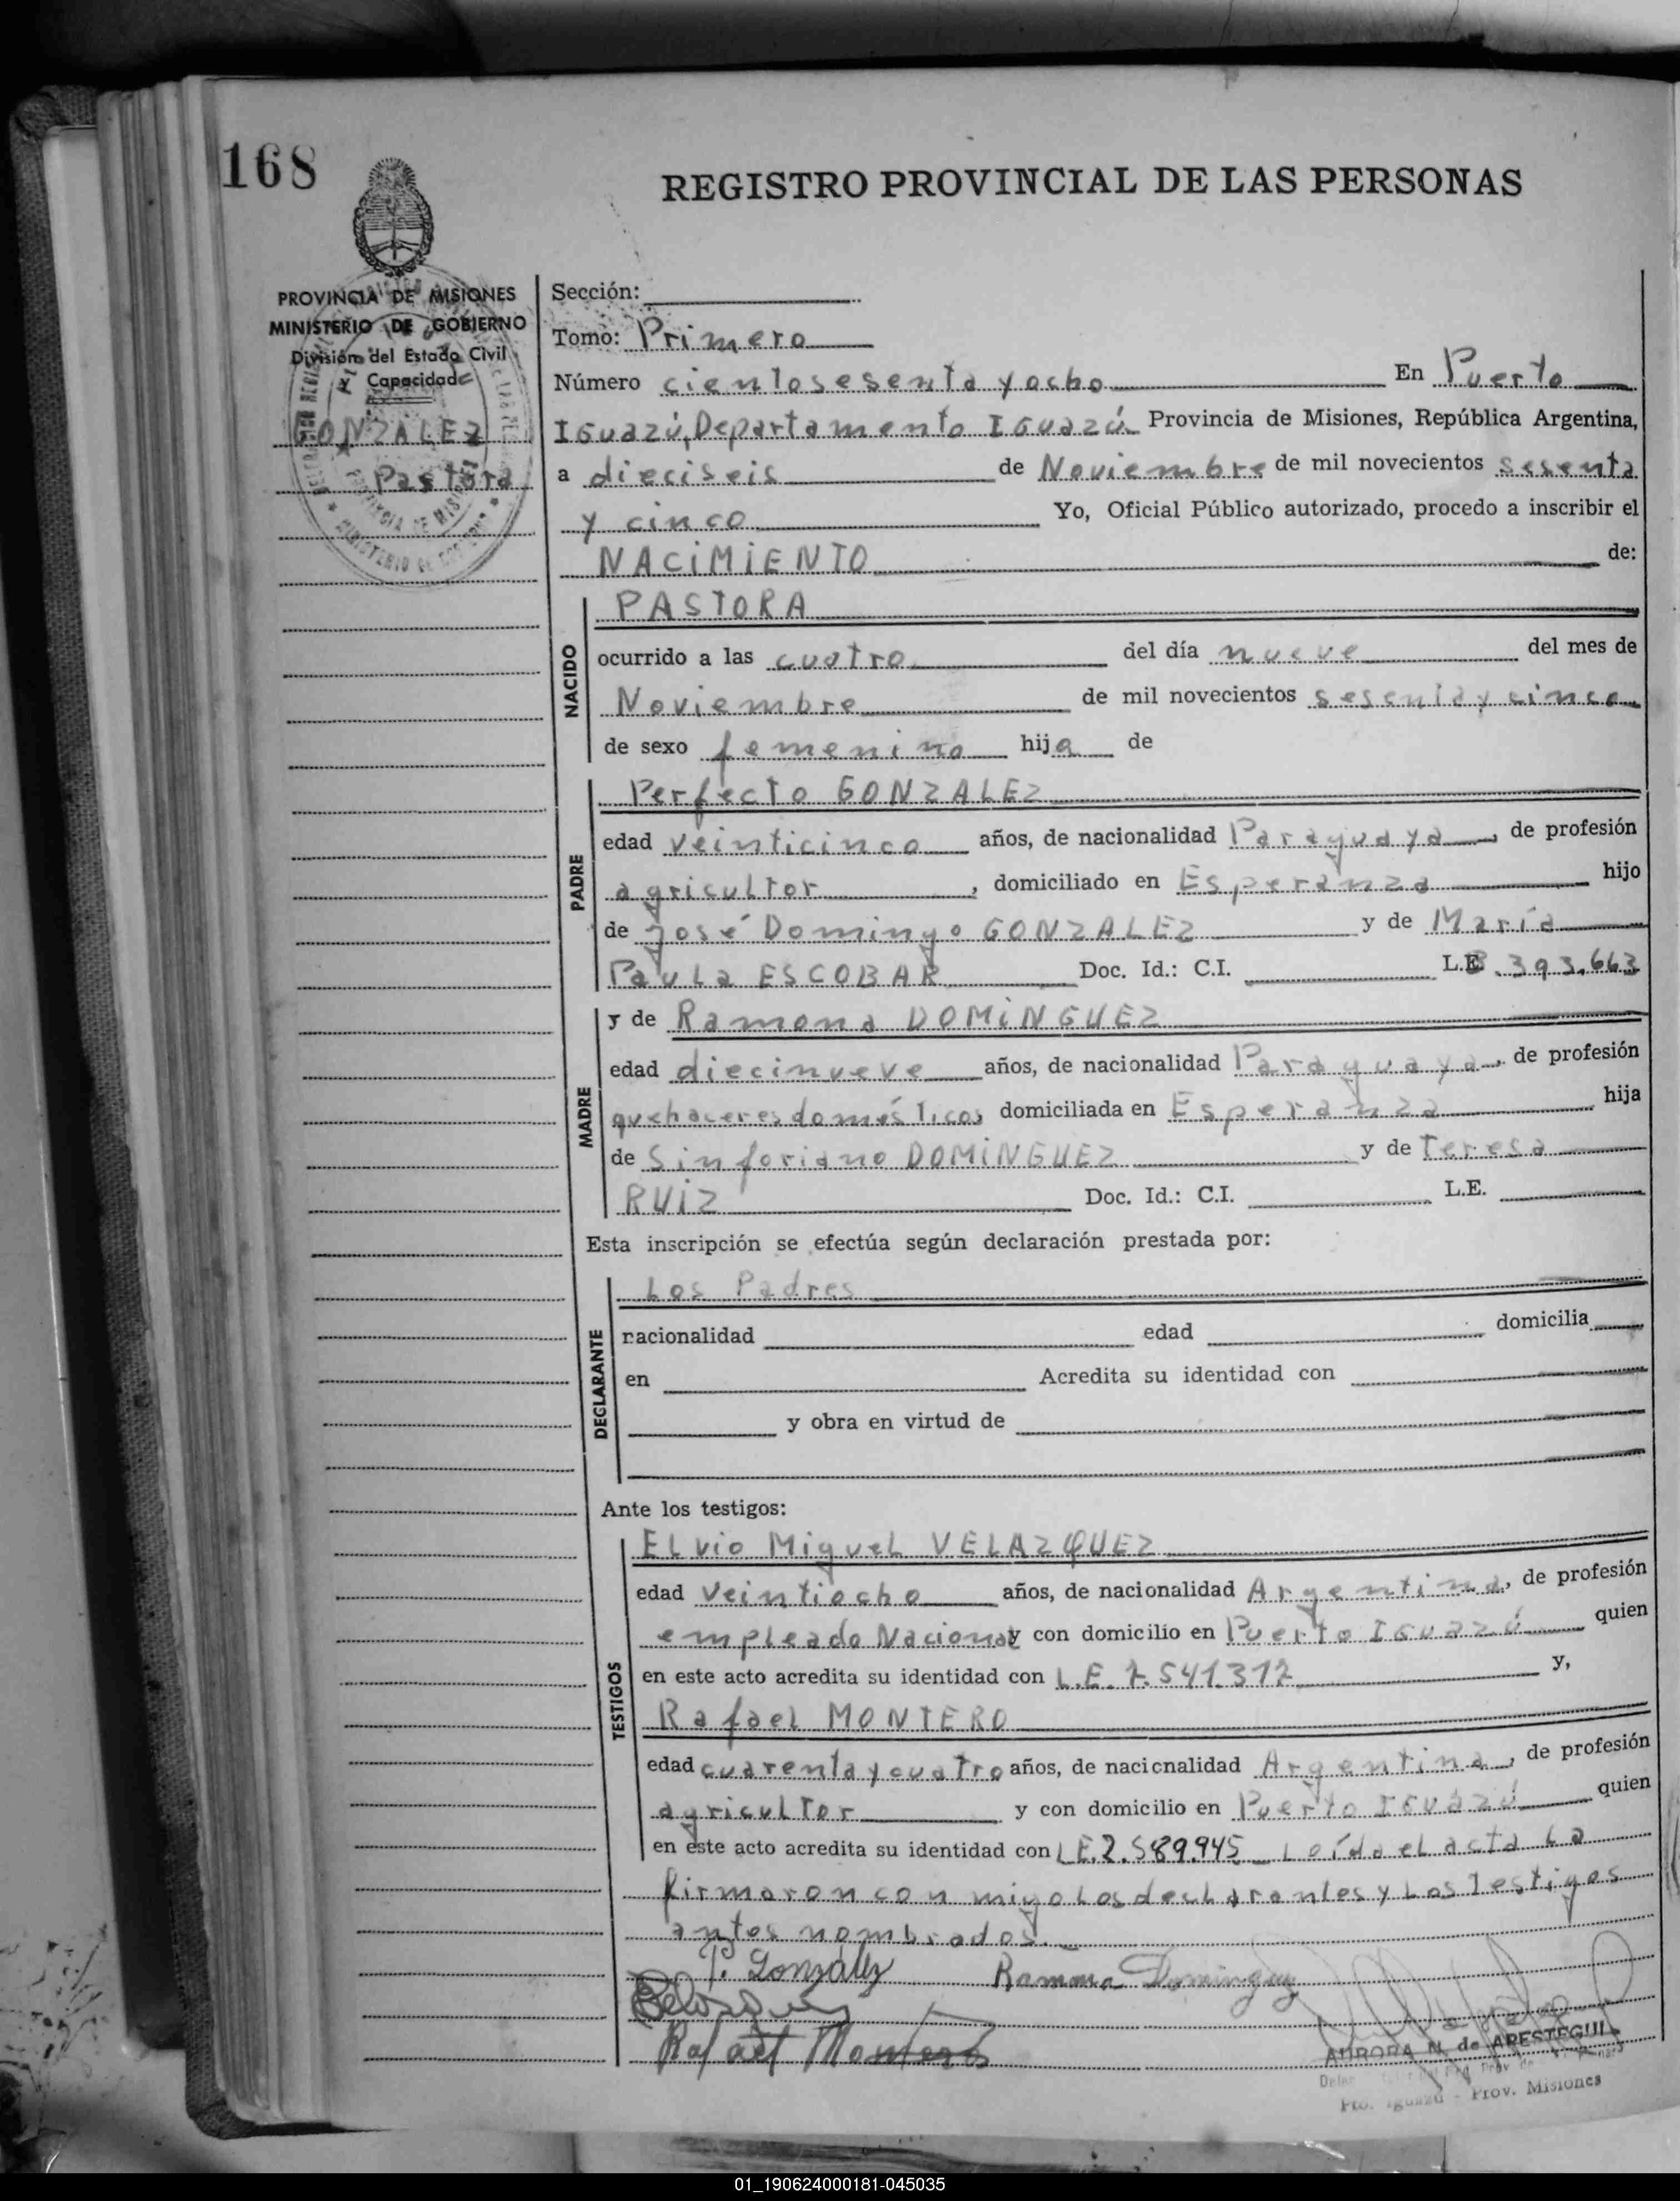 168
REGISTRO PROVINCIAL DE LAS PERSONAS
PROVINCIA DE MISIONES
MINISTERIO DE GOBIERNO
División del Estado Civil
y Capacidad
GONZALEZ
Pastora
Sección:
Tomo: Primero
Número ciento sesenta y ocho En Puerto
Iguazú, Departamento Iguazú Provincia de Misiones, República Argentina,
a dieciseis de Noviembre de mil novecientos sesenta
y cinco Yo, Oficial Público autorizado, procedo a inscribir el
NACIMIENTO de:
NACIDO
PASTORA
ocurrido a las cuatro del día nueve del mes de
Noviembre de mil novecientos sesenta y cinco
de sexo femenino hija de
PADRE
Perfecto GONZALEZ
edad veinticinco años, de nacionalidad Paraguaya, de profesión
agricultor, domiciliado en Esperanza hijo
de José Domingo GONZALEZ y de María
Paula ESCOBAR Doc. Id.: C.I. L.E. .393.663
MADRE
y de Ramona DOMINGUEZ
edad diecinueve años, de nacionalidad Paraguaya, de profesión
quehaceres domésticos domiciliada en Esperanza hija
de Sinforiano DOMINGUEZ y de Teresa
RUIZ Doc. Id.: C.I. L.E.
Esta inscripción se efectúa según declaración prestada por:
DECLARANTE
Los Padres
nacionalidad edad domicilia
en Acredita su identidad con
y obra en virtud de
Ante los testigos:
TESTIGOS
Elvio Miguel VELAZQUEZ
edad veintiocho años, de nacionalidad Argentina, de profesión
empleado Nacional y con domicilio en Puerto Iguazú quien
en este acto acredita su identidad con L.E. 7.541.312 y,
Rafael MONTERO
edad cuarenta y cuatro años, de nacionalidad Argentina, de profesión
agricultor y con domicilio en Puerto Iguazú quien
en este acto acredita su identidad con L.E. 2.589.945 Leída el acta la
firmaron con migo los declarantes y los testigos
antes nombrados.
P. González Ramona Dominguez
Rafael Montero
AURORA N. de ARESTEGUI
Pto. Iguazú - Prov. Misiones
01_190624000181-045035